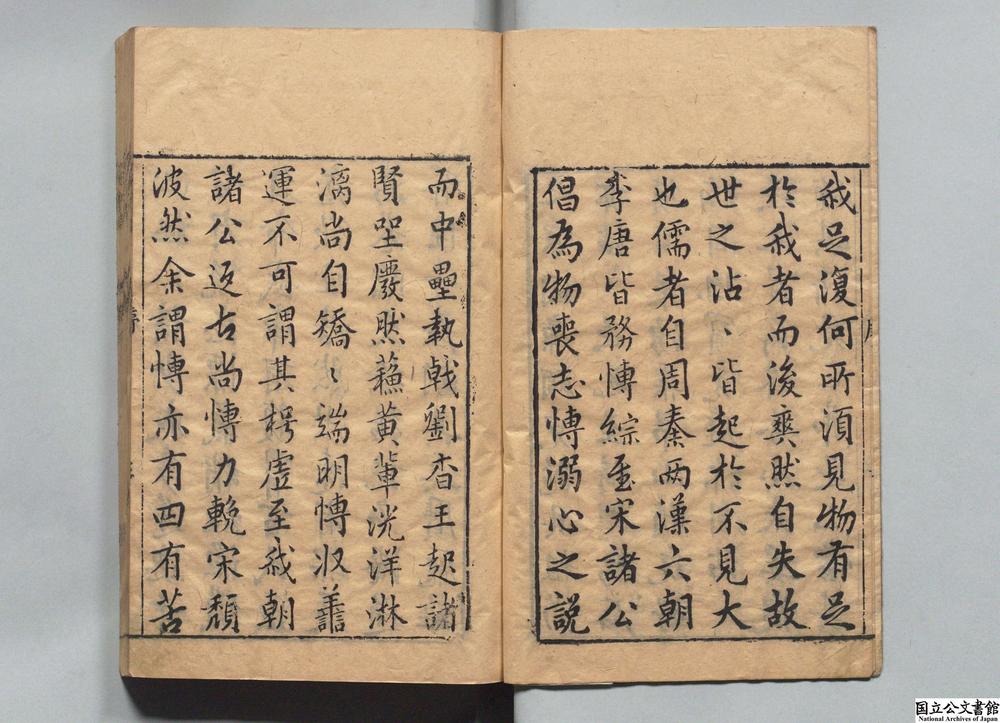 我足復何所須見物有足
於我者而後爽然自失故
世之沾丶皆起於不見大
也儒者自周秦两漢六朝
李唐皆務博綜至宋諸公
倡為物喪志博溺心之説
而中壘執戟劉杳王起諸
賢坐廢然蘓黄軰洸洋淋
漓尚自矯丶端明博收
運不可謂其枵虚至我朝
諸公返古尚博力輓宋頽
波然余謂博亦有四有苦
序
国立公文書館
National Archives of Japan